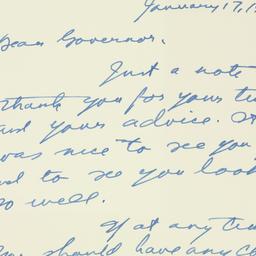 January 17, 1
Dear Governor,
Just a note
thank you for your
and your advice. It
was nice to see you
and to see you look
so well.
If at any time
you should have any co